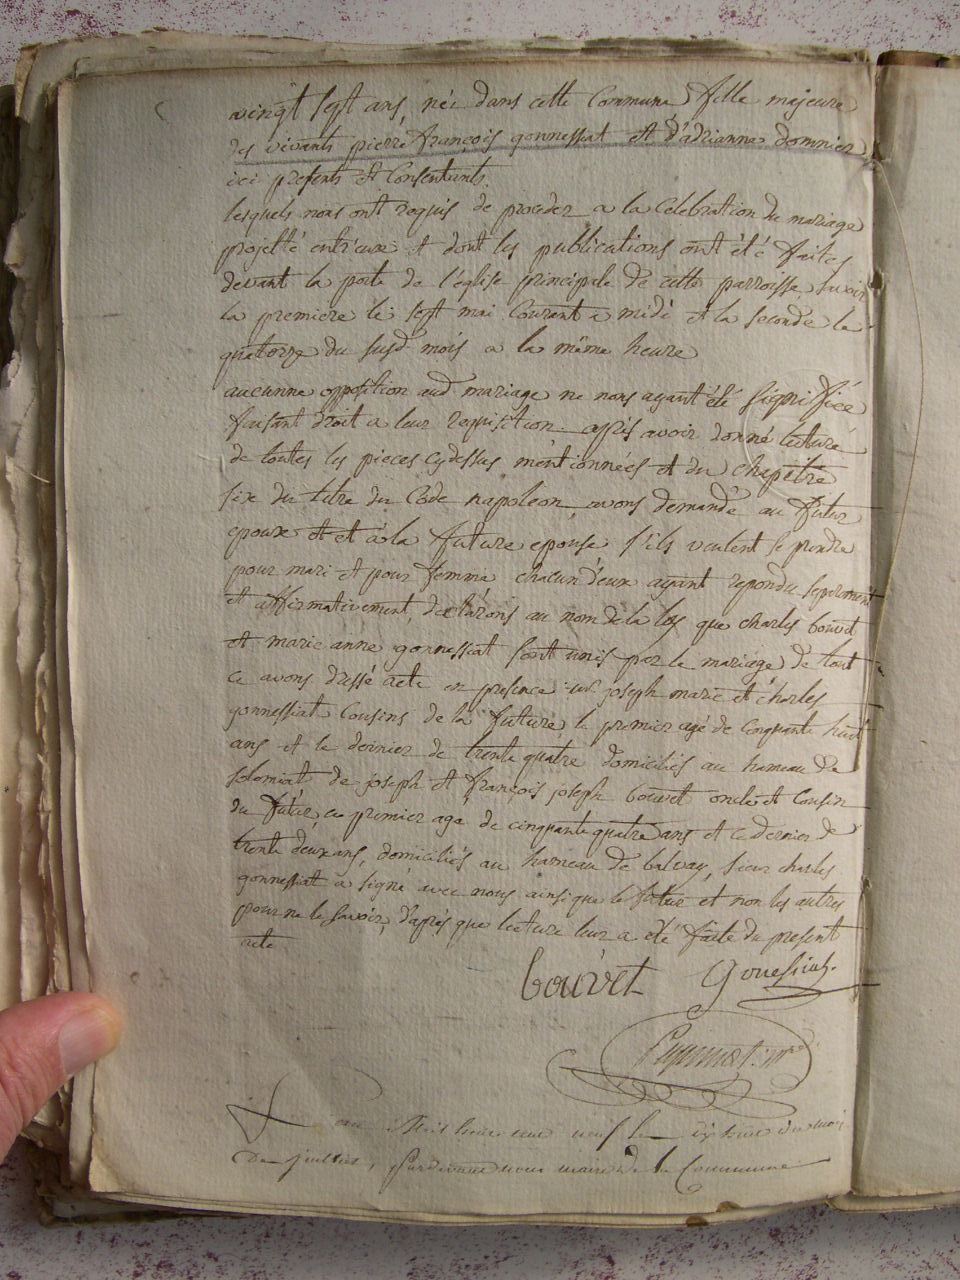 vingt sept ans, née dans cette Commune fille majeure
des vivants pierre françois gonnessiat et d'adrianne domnier
ici presents et Consentants.
lesquels nous ont requis de proceder a la Célébration du mariage
projetté entr'eux et dont les publications ont été faites
devant la porte de l'église principale de cette parroisse, savoir
la premiere le sept mai Courent a midi et la seconde le
quatorze du susd. mois a la même heure
aucunne opposition aud. mariage ne nous ayant été signifiée
faisant droit a leur requisition. après avoir donné lecture
de toutes les pieces cydessus mentionnées et du chapitre
six du titre du Code napoleon, avons demandé au futur
epoux et et à la future epouse s'ils veulent se prendre
pour mari et pour femme chacun d'eux ayant repondu separement
et affirmativement, declarons au nom de la loy que charles bouvet
et marie anne gonnessiat sont unis par le mariage de tout
ce avons dressé acte en presence joseph marie et charles
gonnessiat Cousins de la future le premier agé de Cinquante huit
ans et le dernier de trente quatre domiciliés au hameau de
solomiat de joseph et françois joseph bouvet oncle et Cousin
du futur, ce premier age de cinquante quatre ans et ce dernier de
trente deux ans, domiciliés au hameau de balvay, sieur charles
gonnessiat a signé avec nous ainsi que le futur et non les autres
pour ne le savoir, d'après que lecture leur a été faite du present
acte
bouvet Gonessiat.
L'an Mil huit cent neuf le dix huit du moi
De juillet, pardevant nous maire de la Commune